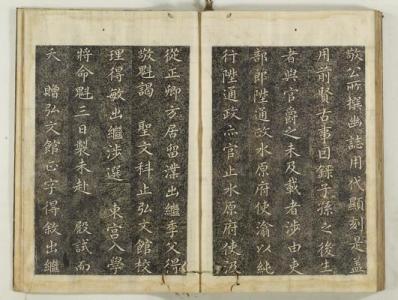 敬公所撰幽誌用代顯刻是盖
用前賢古事因錄子孫之後上
者與官爵之未及載者涉由吏
部郎陞通政水原府使渝以純
行陞通政亦官止水原府使汲
從正卿方居留濼出繼季父得
敬魁謁 聖文科止弘文館校
理得敏出繼涉選 東宮入學
將命魁三日製未赴 殿試而
夭 贈弘文館正字得敍出繼